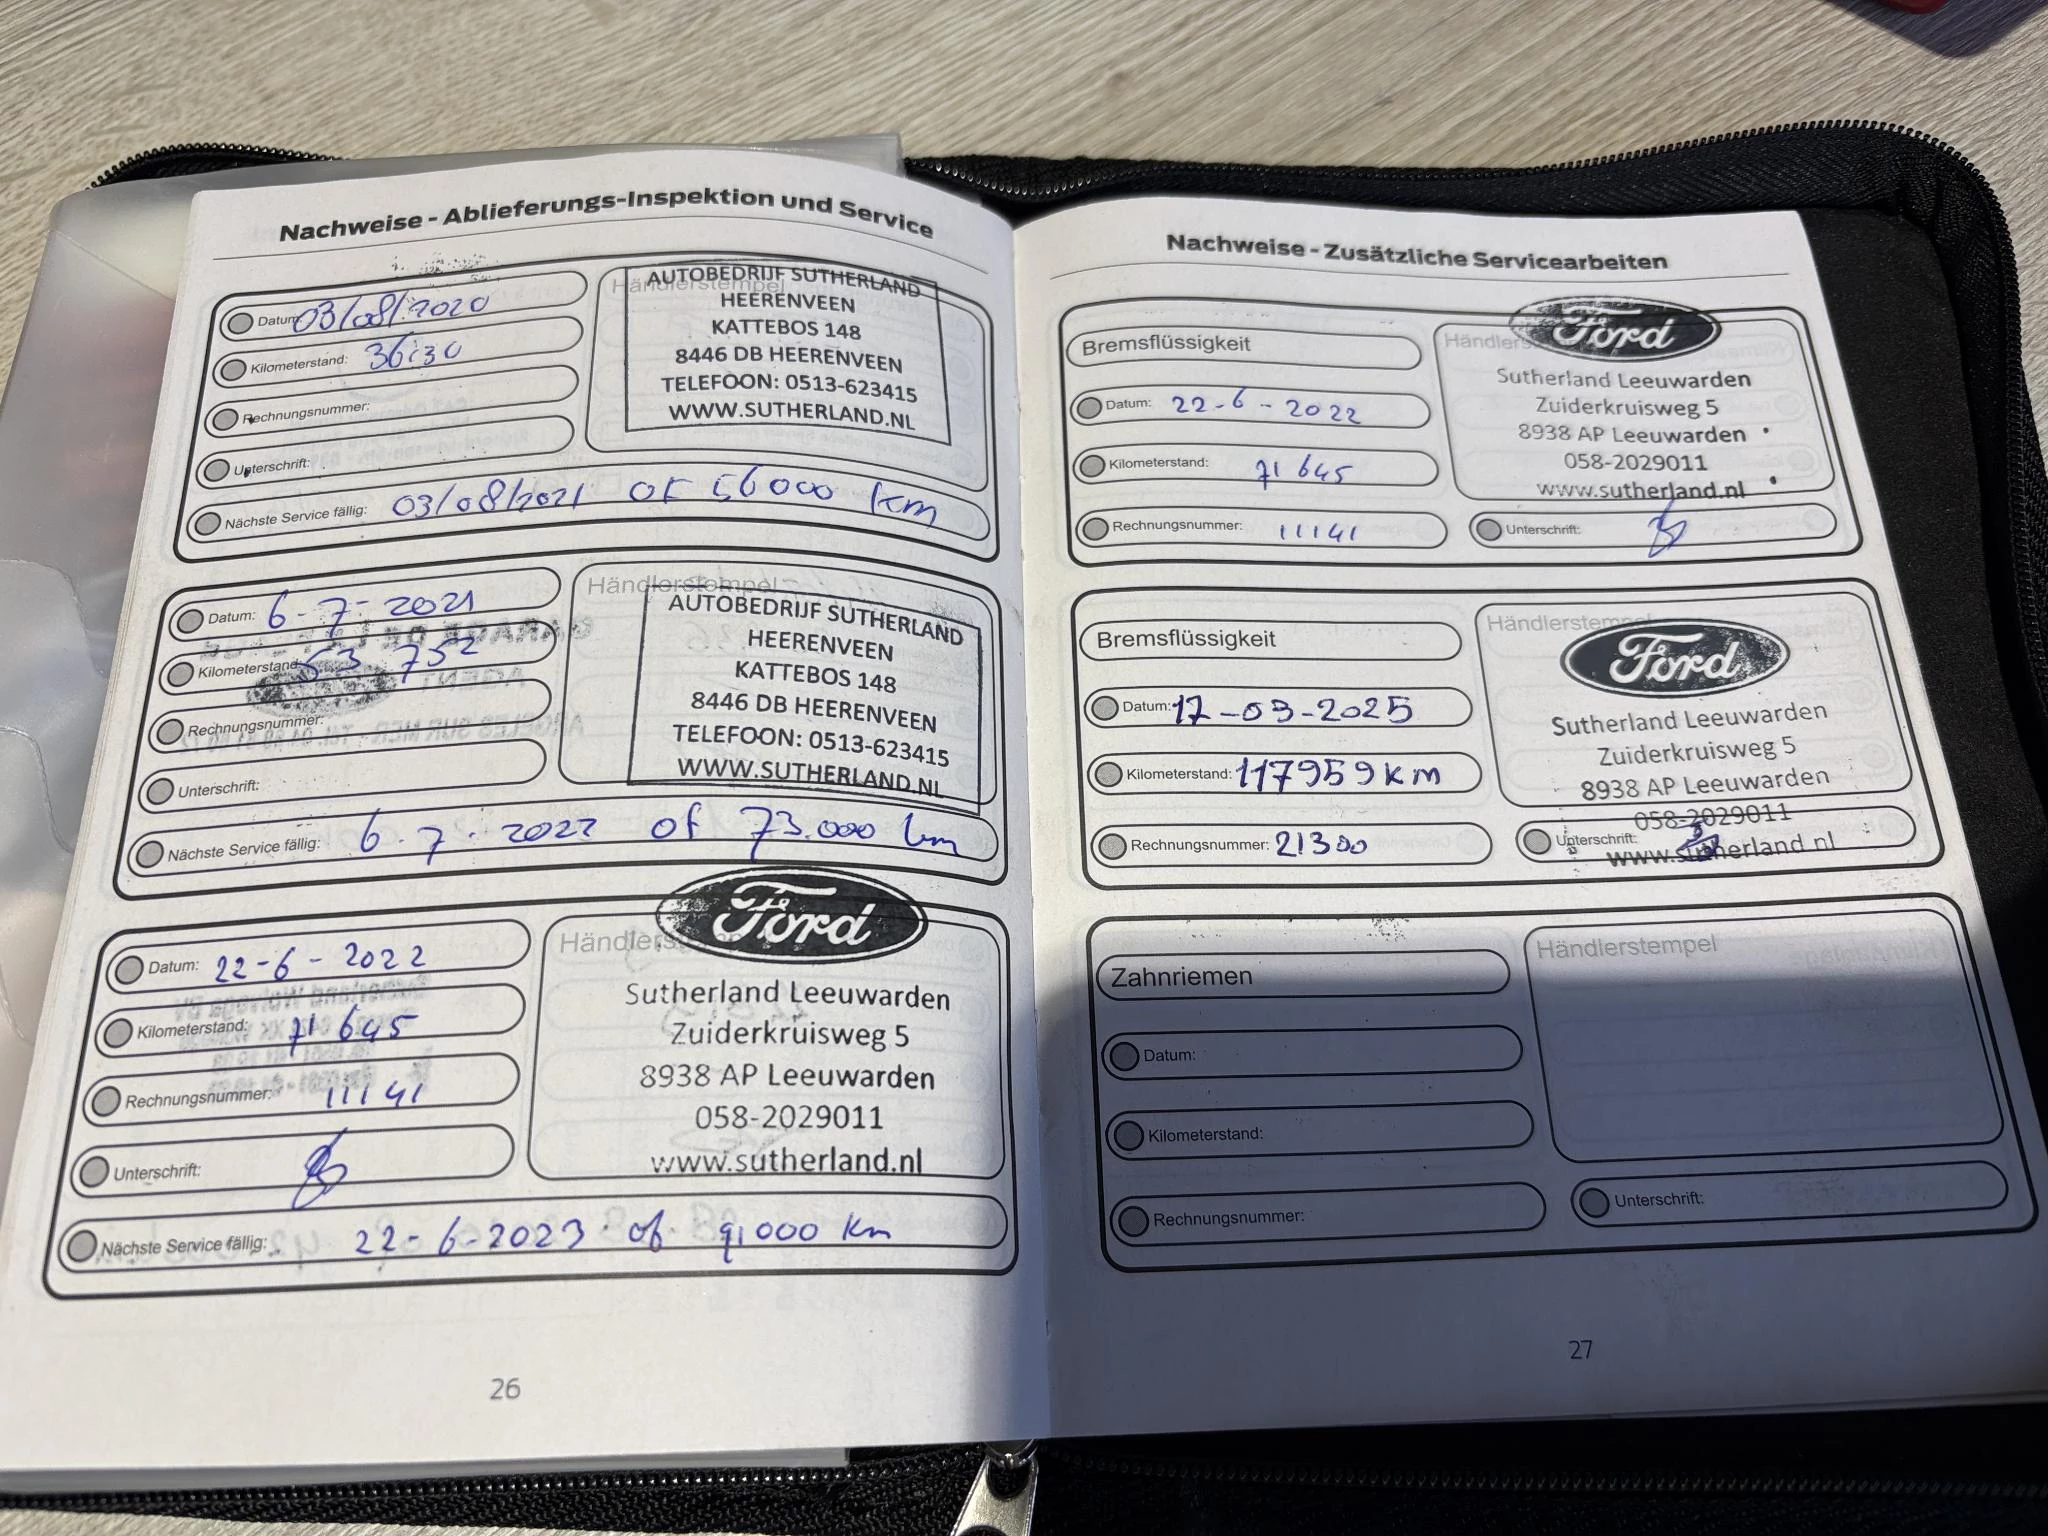 Nachweise - Ablieferungs-Inspektion und Service
Datum: 03/08/2020
Kilometerstand:
Rechnungsnummer:
Unterschrift:
Nächste Service fällig: 03/08/2021 of 56000 km
Händlerstempel
AUTOBEDRIJF SUTHERLAND
HEERENVEEN
KATTEBOS 148
8446 DB HEERENVEEN
TELEFOON: 0513-623415
WWW.SUTHERLAND.NL
Datum: 6-7-2021
Kilometerstand: 53 752
Rechnungsnummer:
Unterschrift:
Nächste Service fällig: 6-7-2022 of 73.000 km
Händlerstempel
AUTOBEDRIJF SUTHERLAND
HEERENVEEN
KATTEBOS 148
8446 DB HEERENVEEN
TELEFOON: 0513-623415
WWW.SUTHERLAND.NL
Datum: 22-6-2022
Kilometerstand: 71 645
Rechnungsnummer: 11141
Unterschrift:
Nächste Service fällig: 22-6-2023 of 91000 km
Ford
Sutherland Leeuwarden
Zuiderkruisweg 5
8938 AP Leeuwarden
058-2029011
www.sutherland.nl
26
Nachweise - Zusätzliche Servicearbeiten
Bremsflüssigkeit
Datum: 22-6-2022
Kilometerstand: 71 645
Rechnungsnummer: 11141
Ford
Sutherland Leeuwarden
Zuiderkruisweg 5
8938 AP Leeuwarden
058-2029011
www.sutherland.nl
Unterschrift:
Bremsflüssigkeit
Datum: 17-03-2025
Kilometerstand: 117959 km
Rechnungsnummer: 21300
Händlerstempel
Ford
Sutherland Leeuwarden
Zuiderkruisweg 5
8938 AP Leeuwarden
058-2029011
www.sutherland.nl
Unterschrift:
Zahnriemen
Datum:
Kilometerstand:
Rechnungsnummer:
Händlerstempel
Unterschrift:
27